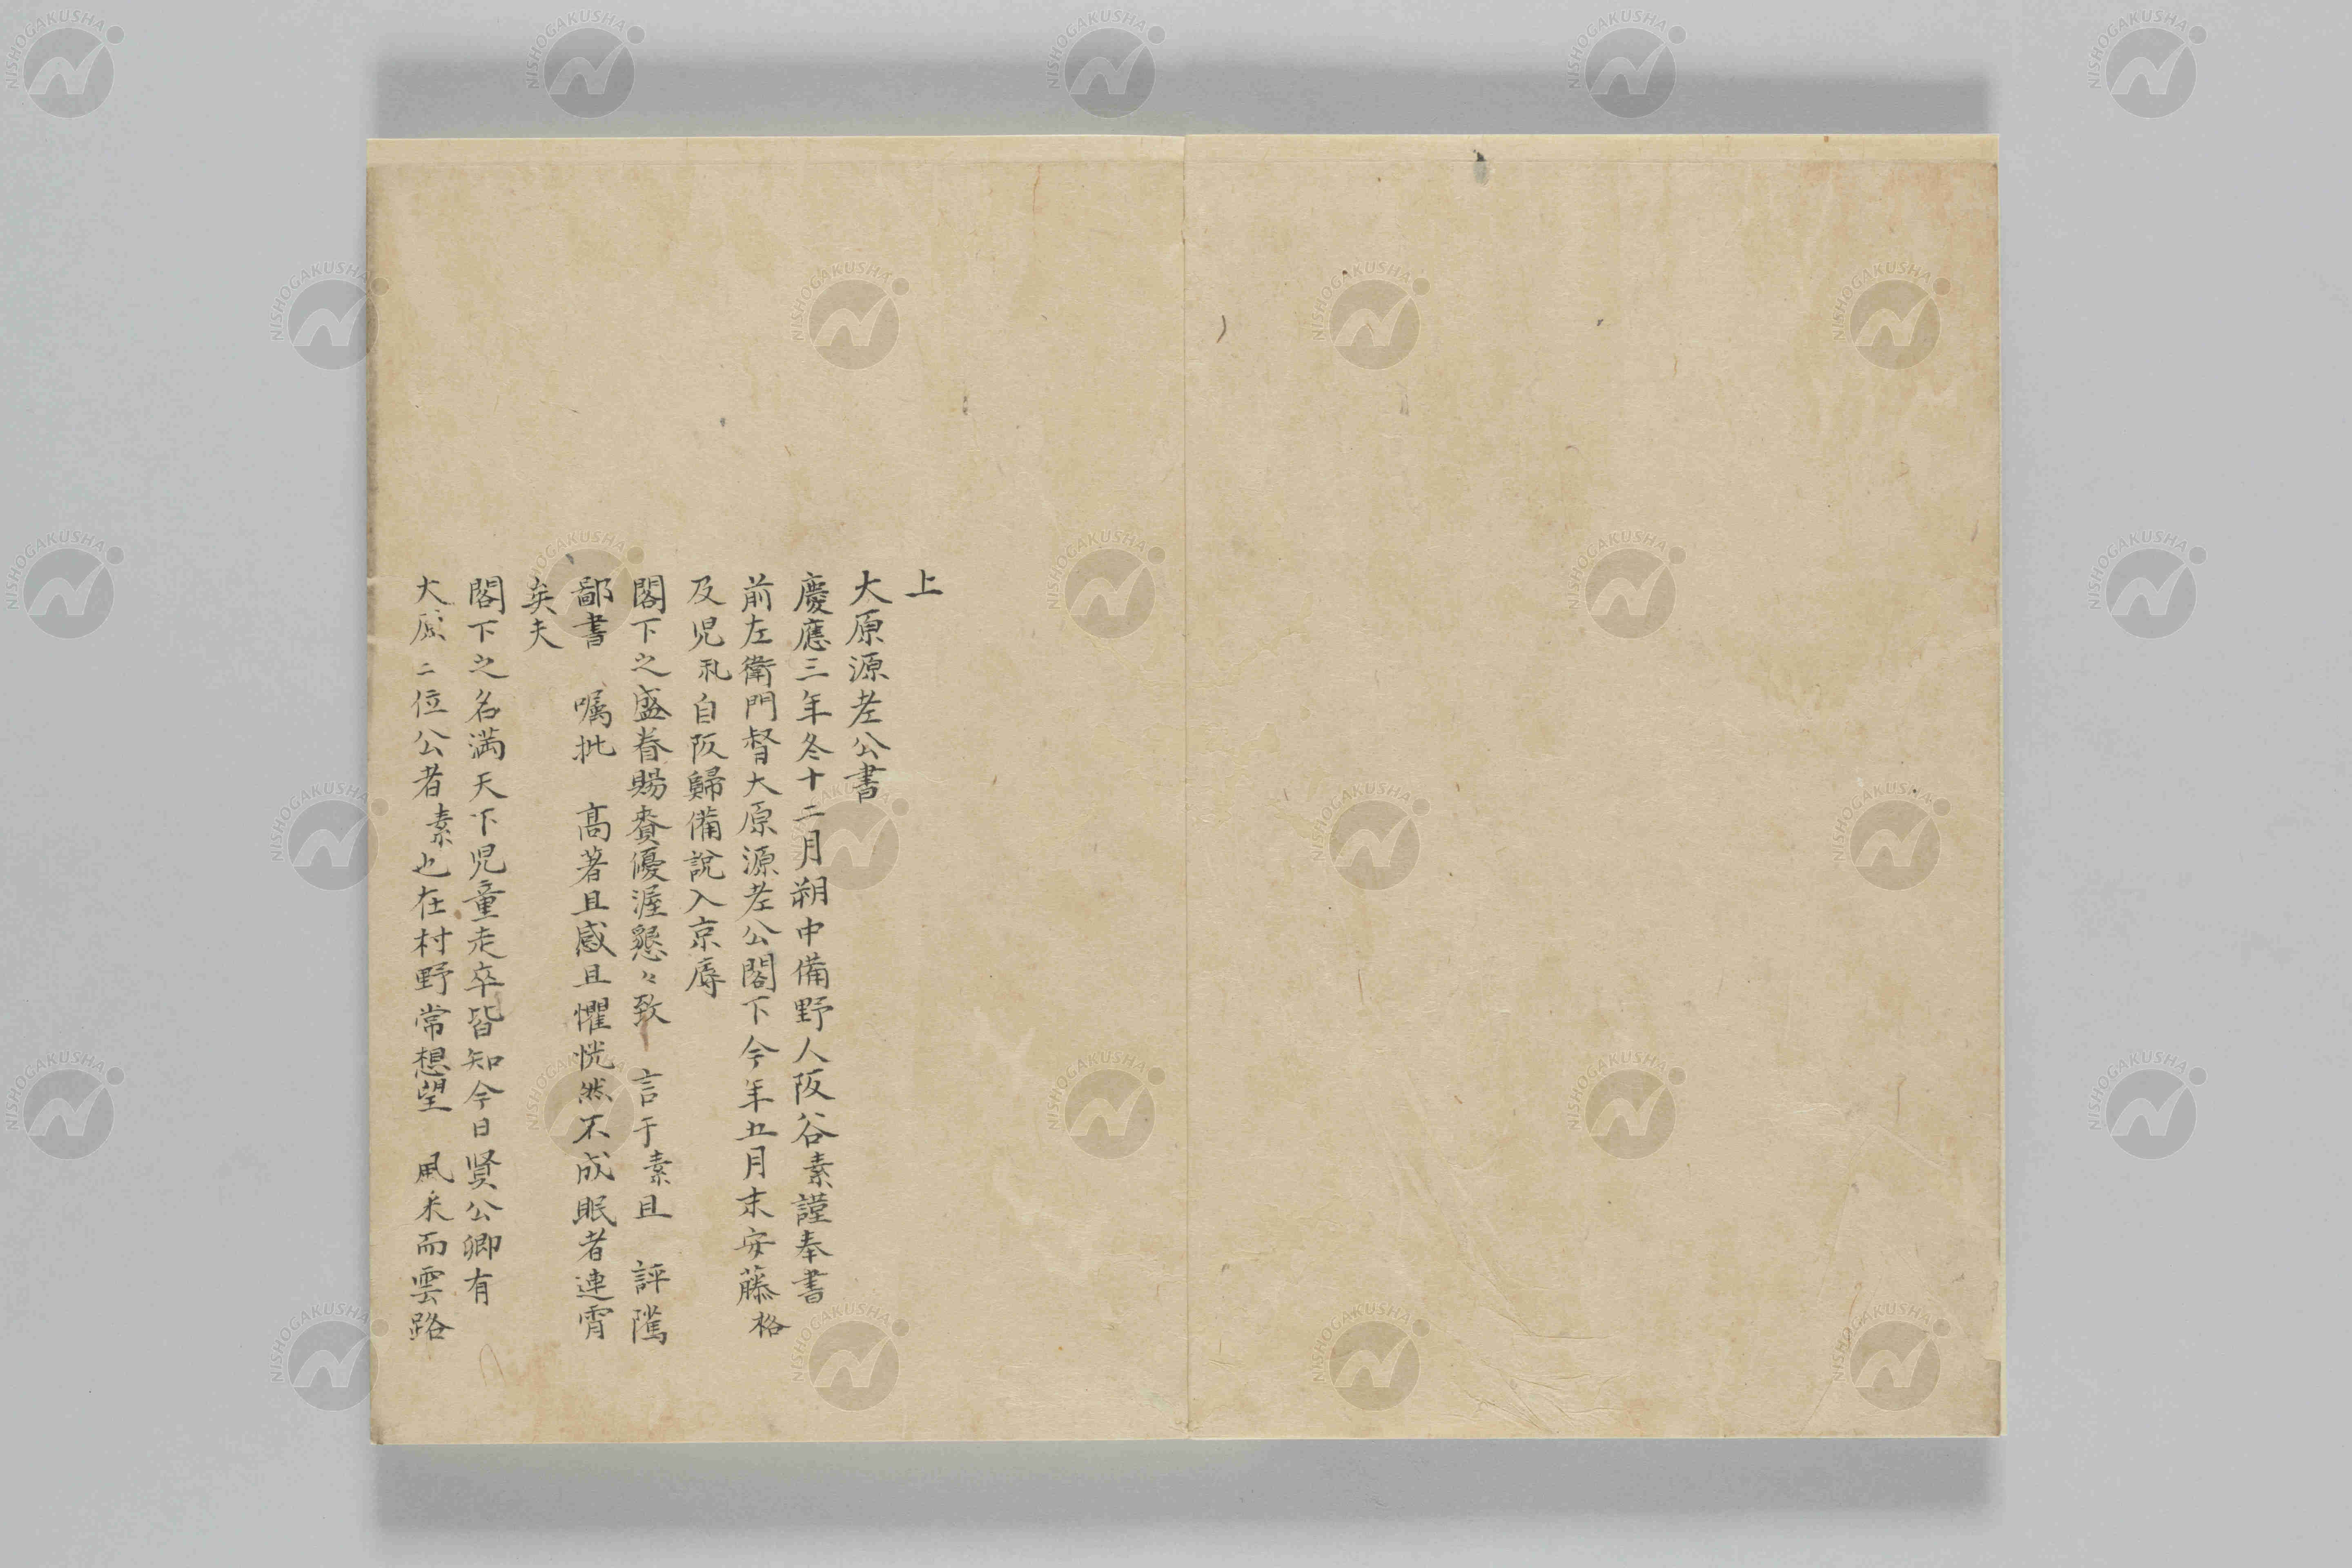 上
大原源老公書
慶應三年冬十二月朔中備野人阪谷素謹奉書
前左衛門督大原源老公閣下今年五月末安藤格
及児礼自阪歸備説入京辱
閣下之盛眷賜賚優渥懇々致　言于素且　評隲
鄙書　嘱批　髙著且感且懼恍然不成眠者連霄
矣夫
閣下之名満天下児童走卒皆知今日賢公卿有
大原二位公者素也在村野常想望　風采而雲路